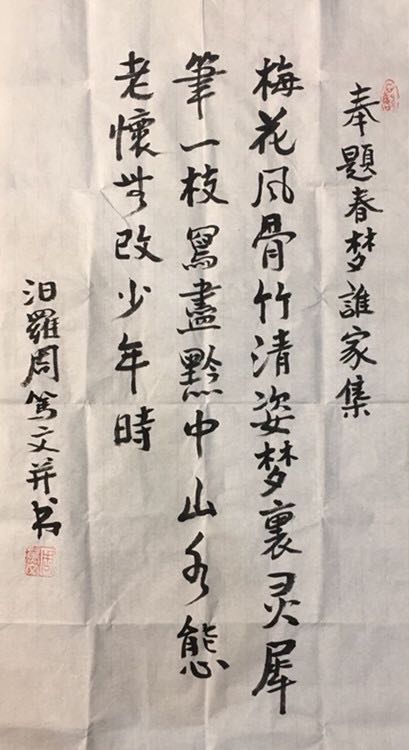 奉題春梦誰家集
梅花风骨竹清姿梦裏灵犀
筆一枝寫盡黔中山水態
老懷无改少年時
汨羅周篤文并书